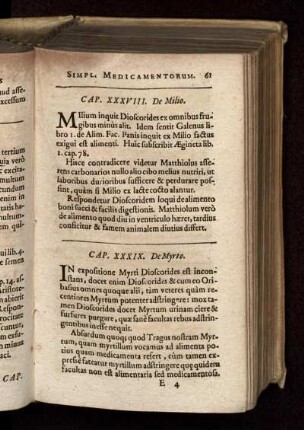 SIMPL. MEDICAMENTORUM. 61
CAP. XXXVIII. De Milio.
MIlium inquit Dioscorides ex omnibus fru-
gibus minùs alit. Idem sentit Galenus li-
bro 1. de Alim. Fac. Panis inquit ex Milio factus
exigui est alimenti. Huic subscribit Ægineta lib.
1. cap. 78.
Hisce contradicere videtur Matthiolus asse-
rens carbonarios nullo alio cibo melius nutriri, ut
laboribus durioribus sufficere & perdurare pos-
sint, quàm si Milio ex lacte cocto alantur.
Respondetur Dioscoridem loqui de alimento
boni succi & facilis digestionis. Matthiolum verò
de alimento quod diu in ventriculo hæret, tardius
conficitur & famem animalem diutius differt.
CAP. XXXIX. De Myrto.
IN expositione Myrti Dioscorides est incon-
stans, docet enim Dioscorides & cum eo Ori-
basius omnes quoque alii, tùm veteres quàm re-
centiores Myrtum potenter adstringere: mox ta-
men Dioscorides docet Myrtum urinam ciere &
furfures purgare, quæ sanè facultas rebus adstrin-
gentibus inesse nequit.
Absurdum quoque quod Tragus nostram Myr-
tum, quam myrtillum vocamus ad alimenta po-
tius quàm medicamenta refert, cùm tamen ex-
pressè fateatur myrtillum adstringere quæ quidem
facultas non est alimentaria sed medicamentosa.
E 4
tertium
CAP.